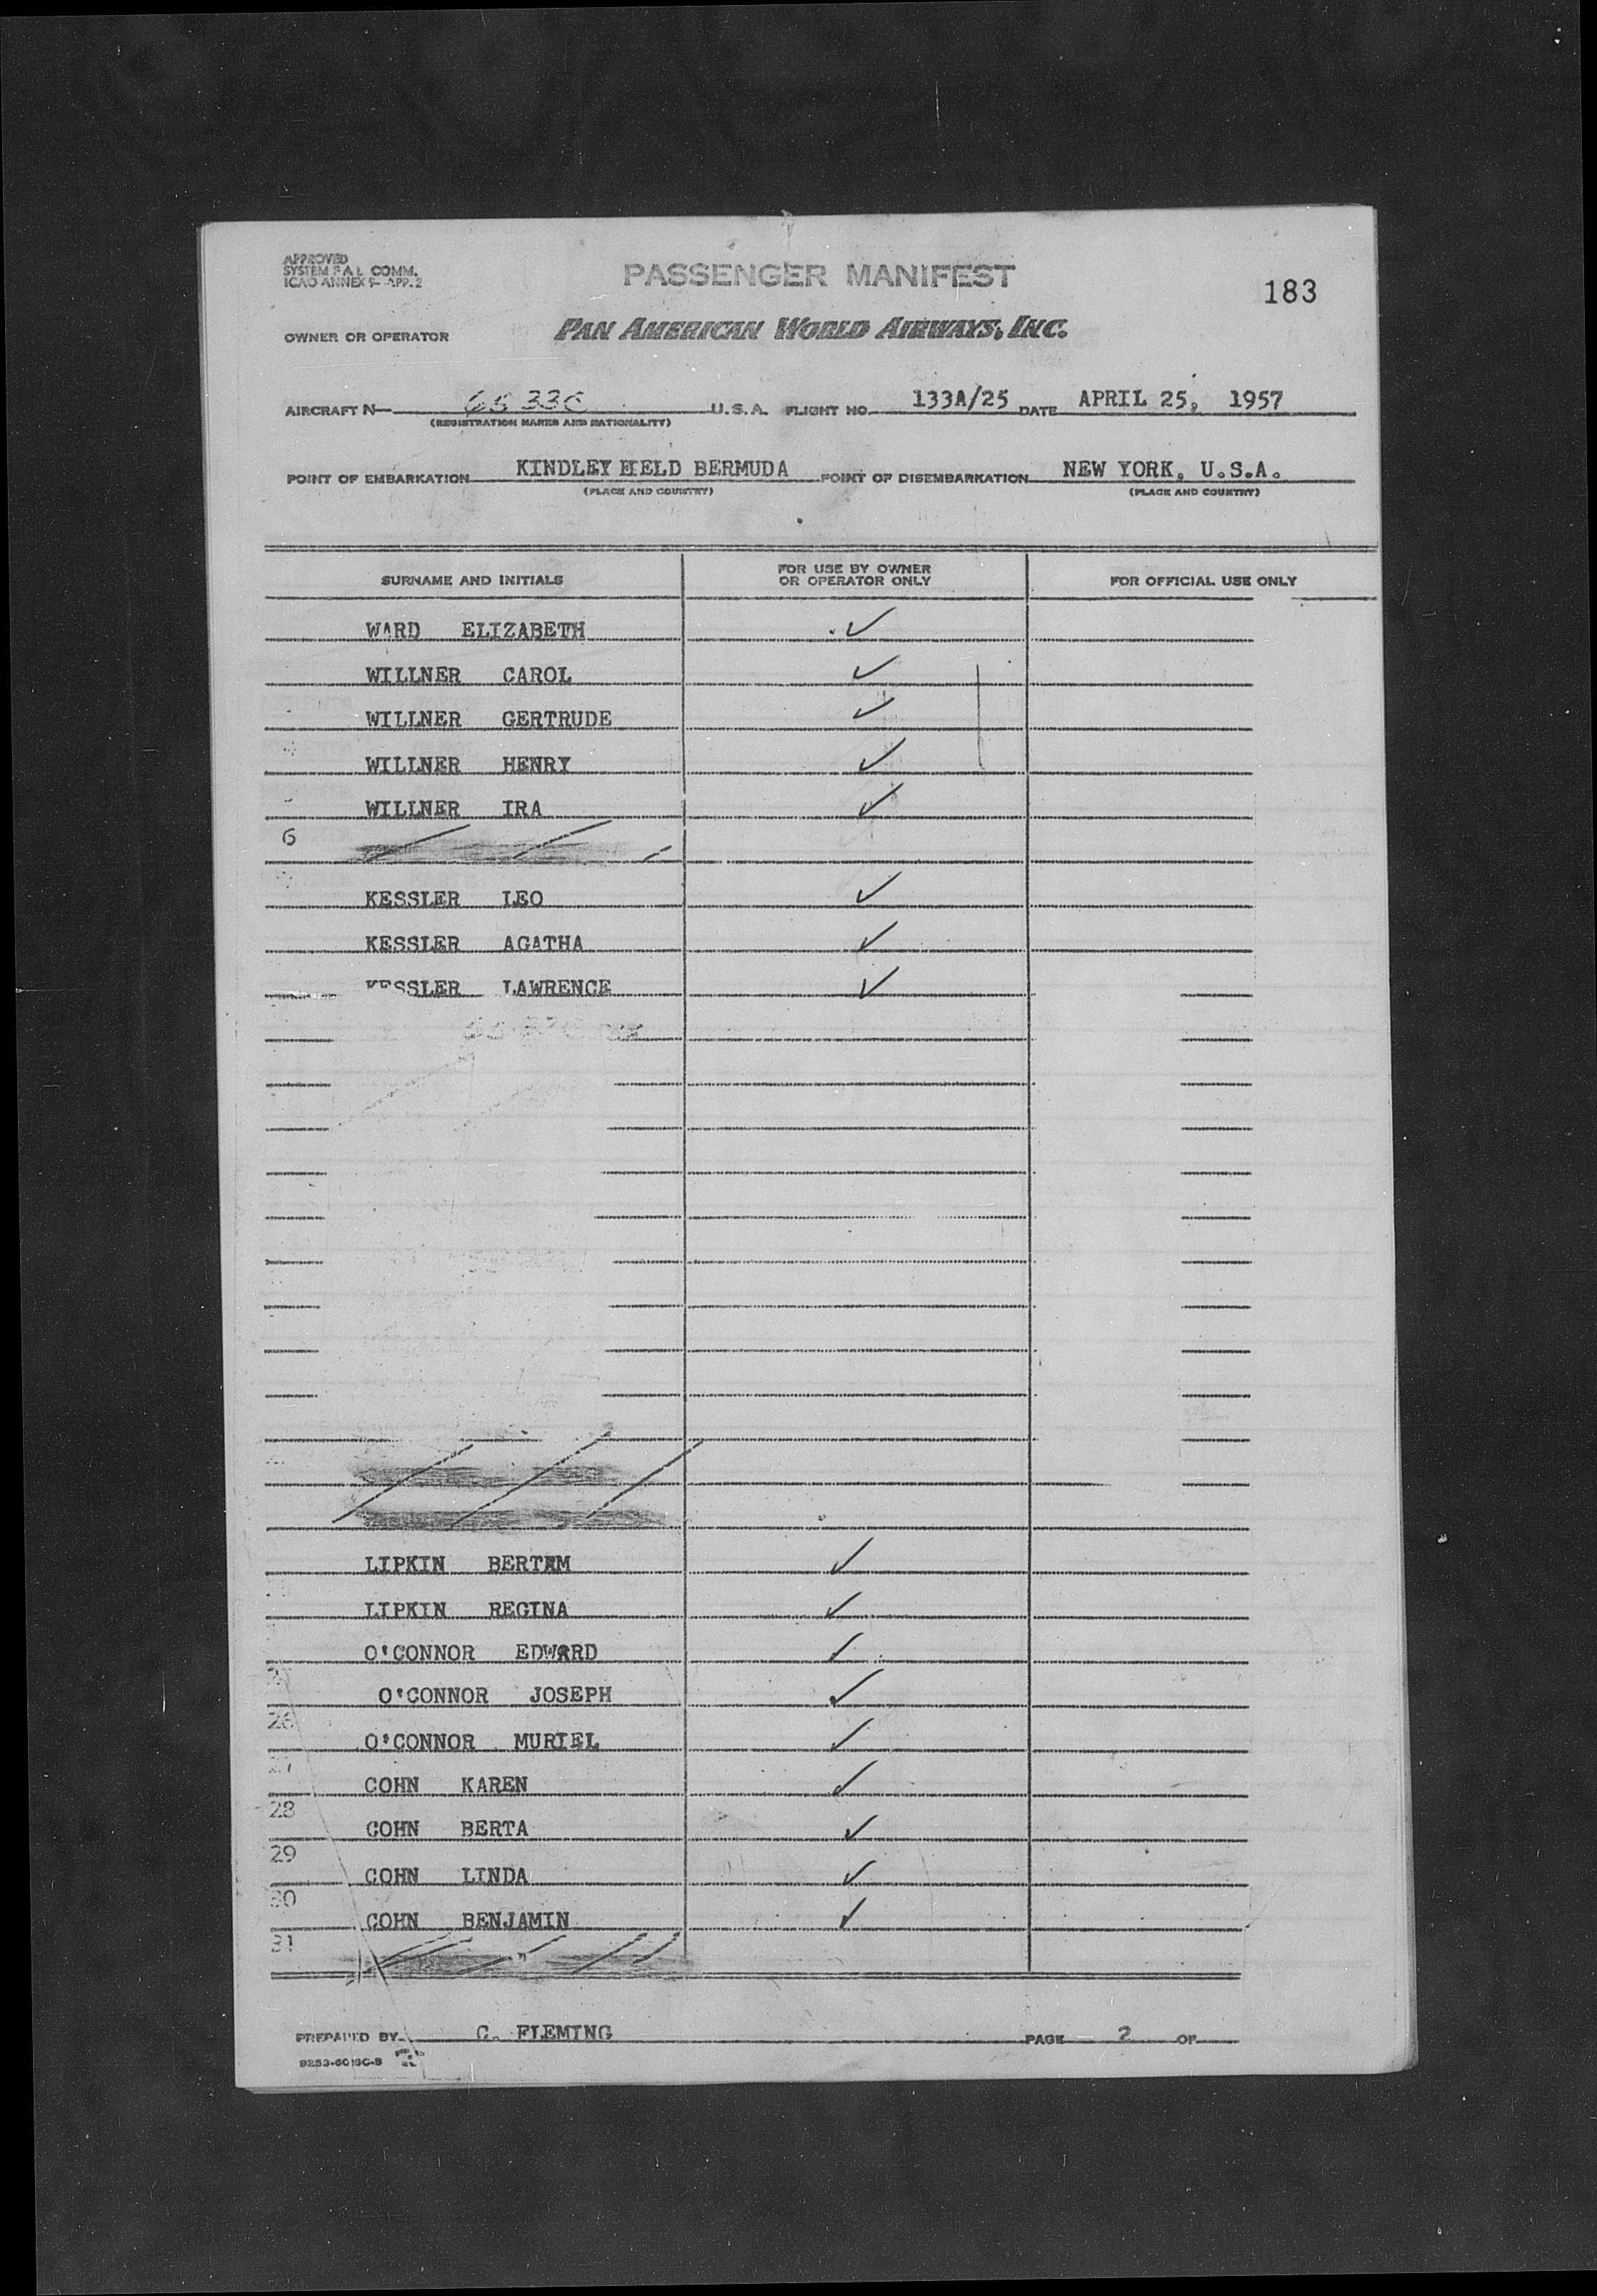 APPROVED
SYSTEM F A L COMM.
ICAO ANNEX 9- APP. 2
PASSENGER MANIFEST
183
OWNER OR OPERATOR
PAN AMERICAN WORLD AIRWAYS, INC.
AIRCRAFT N U.S.A. FLIGHT NO. 133A/25 DATE APRIL 25, 1957
(REGISTRATION MARKS AND NATIONALITY)
POINT OF EMBARKATION KINDLEY FIELD BERMUDA POINT OF DISEMBARKATION NEW YORK, U.S.A.
(PLACE AND COUNTRY) (PLACE AND COUNTRY)
SURNAME AND INITIALS FOR USE BY OWNER OR OPERATOR ONLY FOR OFFICIAL USE ONLY
WARD ELIZABETH ✓
WILLNER CAROL ✓
WILLNER GERTRUDE ✓
WILLNER HENRY ✓
WILLNER IRA ✓
6
KESSLER LEO ✓
KESSLER AGATHA ✓
KESSLER LAWRENCE ✓
LIPKIN ✓
LIPKIN REGINA ✓
O'CONNOR EDWARD ✓
O'CONNOR JOSEPH ✓
26 O'CONNOR MURIEL ✓
27 COHN KAREN ✓
28 COHN BERTA ✓
29 COHN LINDA ✓
30 COHN BENJAMIN ✓
31
PREPARED BY C. FLEMING PAGE 2 OF